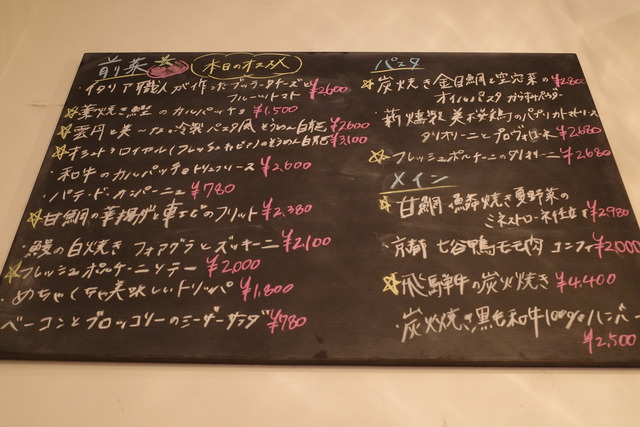 前菜
本日のオススメ
・イタリア職人が作ったブッラータチーズと
フルーツトマト ¥2,600
☆藁焼き鰹のカルパッチョ ¥1,500
☆雲丹と 冷製パスタ風そうめん ¥2,600
☆オシェトラロイヤル(フレッシュキャビア)のそうめん ¥3,100
・和牛のカルパッチョトリュフソース ¥2,600
・パテ・ド・カンパーニュ ¥780
☆甘鯛の 揚げと車エビのフリット ¥2,380
・鰻の白焼き フォアグラとズッキーニ ¥2,100
☆フレッシュポルチーニソテー ¥2,000
・めちゃくちゃ美味しいトリッパ ¥1,300
ベーコンとブロッコリーのシーザーサラダ ¥780
パスタ
☆炭焼き金目鯛と空芯菜の ¥2,80
オイルパスタ からすみパウダー
・薪燻製 美桜鶏のパプリカトマトソース
タリオリーニとプロヴォローネ ¥2,680
☆フレッシュポルチーニのタリオリーニ ¥2,680
メイン
☆甘鯛の鱗焼き 夏野菜の
ミネストローネ仕立て ¥2,980
・京都 七谷鴨モモ肉 コンフィ ¥2,000
☆飛騨牛の炭火焼き ¥4,400
・炭火焼き 黒毛和牛100%ハンバー
¥2,500